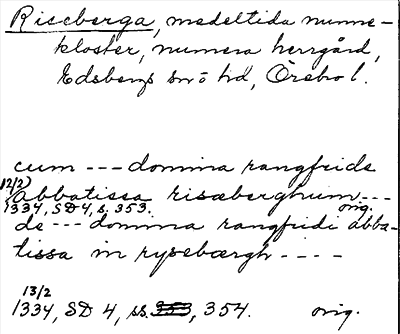 Riseberga, medeltida nunne-
kloster, numera herrgård,
Edsbergs sn o hd, Örebro l.
cum --- domina rangfrids
12/2)
abbatissa risæberghum---
1334, SD 4, s. 353. orig.
de --- domina rangfridi abba-
tissa in rysebærgh ----
13/2
1334, SD 4, ss. 353, 354. orig.